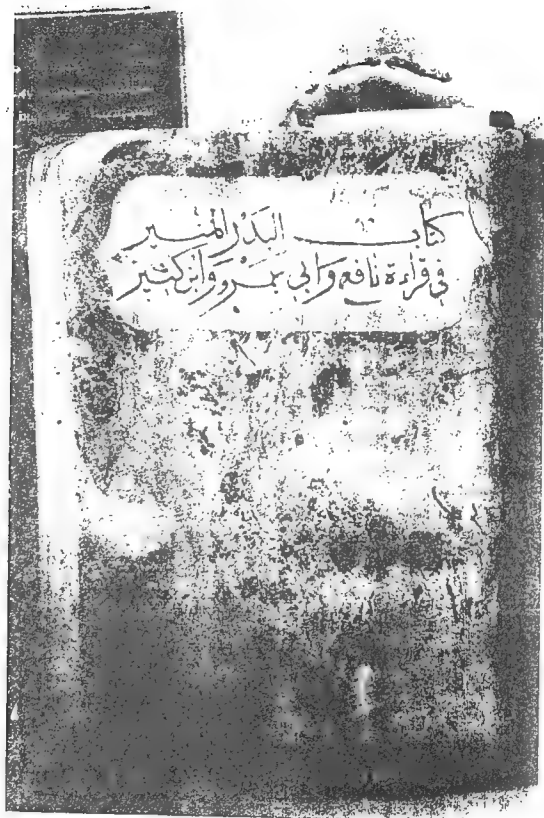 كتاب البدر المنير
في قراءة نافع وابي عمرو وابن كثير